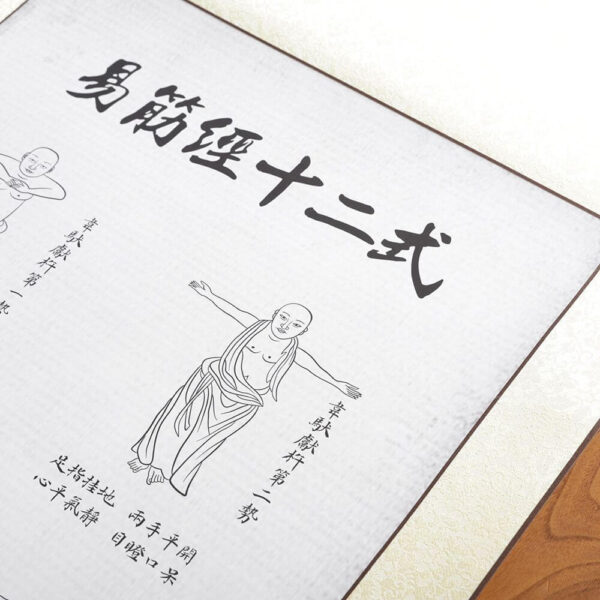 易筋經十二式
韋馱獻杵第二勢
兩手平開
足指拄地
目瞪口呆
心平氣靜
韋馱獻杵第一勢